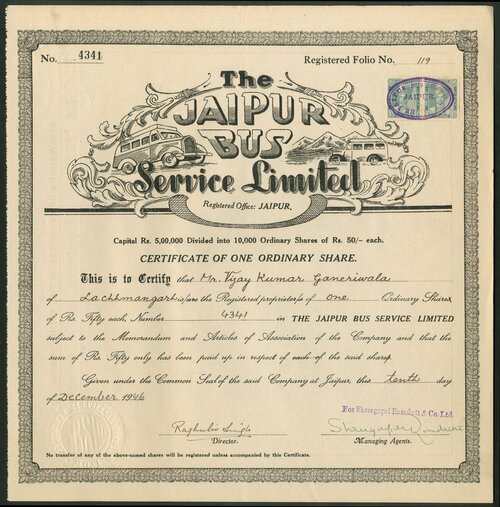 No. 4341
Registered Folio No. 119
The
JAIPUR
BUS
Service Limited
Registered Office: JAIPUR.
JAIPUR
Capital Rs. 5,00,000 Divided into 10,000 Ordinary Shares of Rs. 50/- each.
CERTIFICATE OF ONE ORDINARY SHARE.
This is to Certify that Mr. Vijay Kumar Ganeriwala
of Lachhmangarh is/are the Registered proprietor/s of one Ordinary Share,
of Rs. Fifty each, Number 4341 in THE JAIPUR BUS SERVICE LIMITED
subject to the Memorandum and Articles of Association of the Company and that the
sum of Rs. Fifty only has been paid up in respect of each of the said shares.
Given under the Common Seal of the said Company at Jaipur, this tenth day
of December 1946
For Shreegopal Ramdutt & Co. Ltd.
Raghubir Singh
Director.
Managing Agents.
No transfer of any of the above-named shares will be registered unless accompanied by this Certificate.